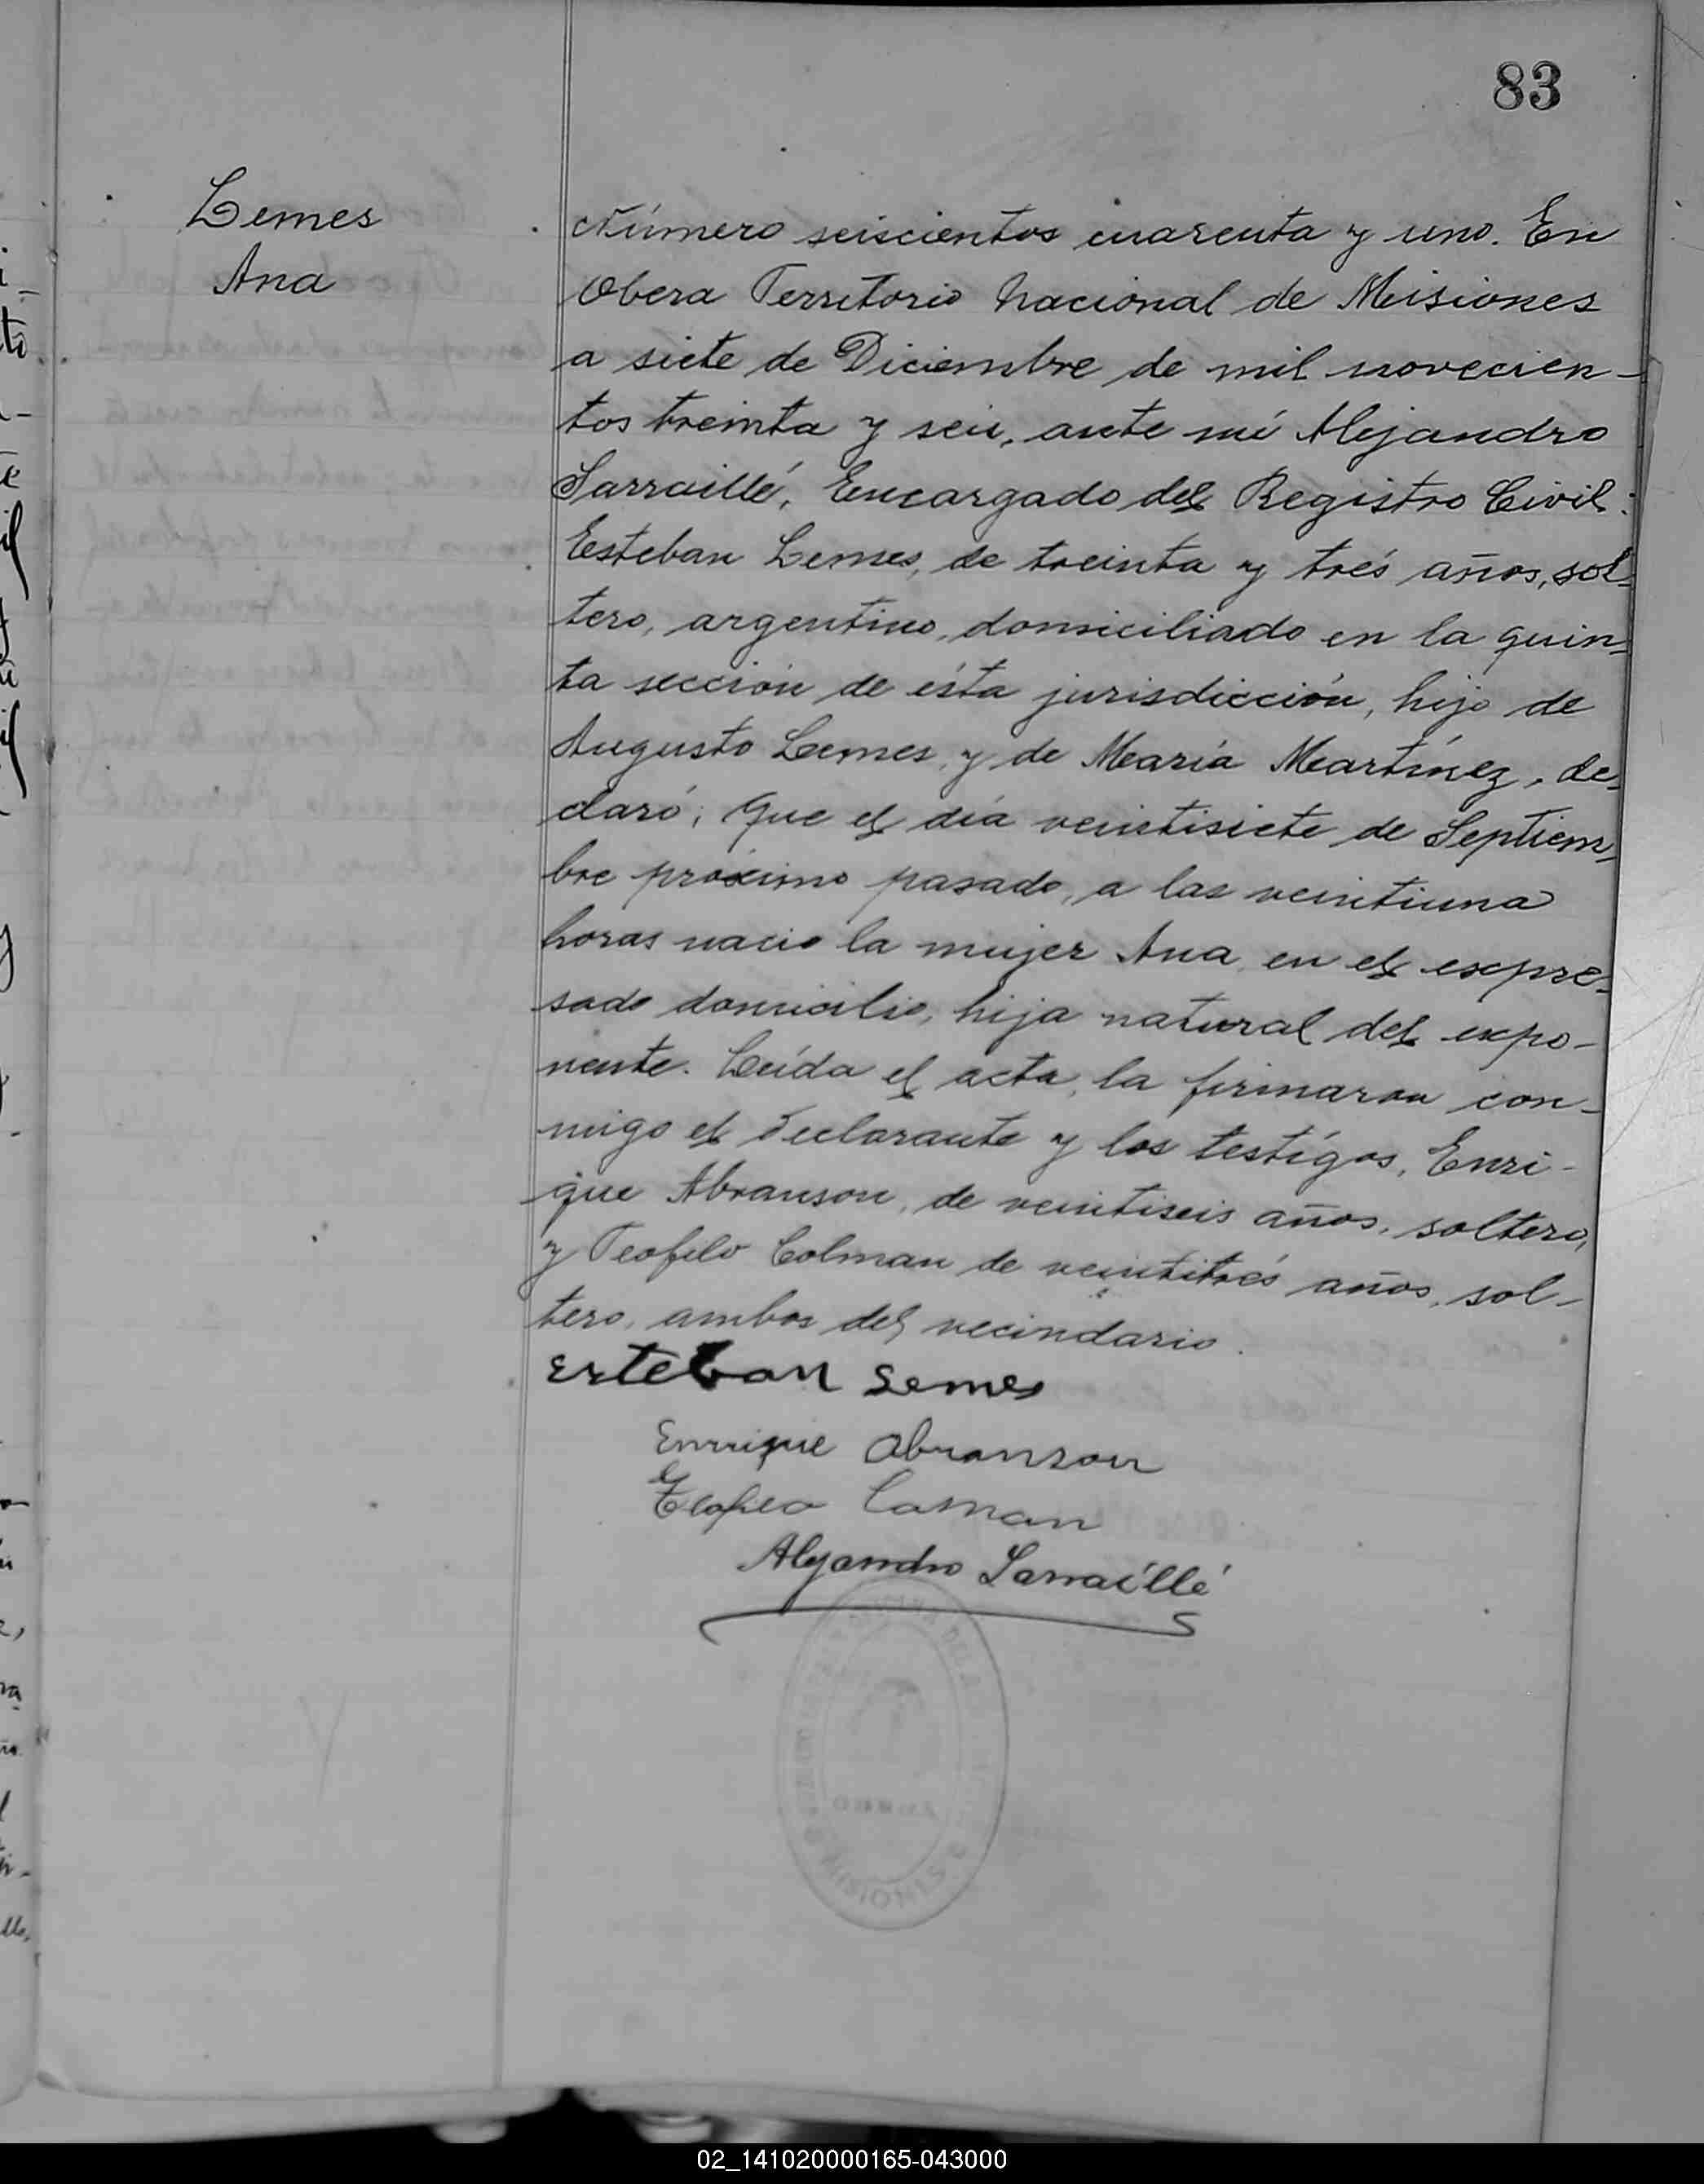 83
Lemes
Ana
Número seiscientos cuarenta y uno. En
Obera Territorio Nacional de Misiones
a siete de Diciembre de mil novecien-
tos treinta y seis, ante mí Alejandro
Sarraillé, Encargado del Registro Civil:
Esteban Lemes, de treinta y trés años, sol-
tero, argentino, domiciliado en la quin-
ta sección de ésta jurisdicción, hijo de
Augusto Lemes, y de María Martínez, de-
claró; Que el día veintisiete de Septiem-
bre próximo pasado, a las veintiuna
horas nacio la mujer Ana, en el expre-
sado domicilio, hija natural del expo-
nente. Leída el acta, la firmaron con-
migo el declarante y los testígos, Enri-
que Abranson, de veintiseis años, soltero,
y Teofilo Colman de veintitrés años, sol-
tero, ambos del vecindario.
Esteban Lemes
Enrrique Abranson
Alejandro Sarraillé
MISIONES
02_141020000165-043000